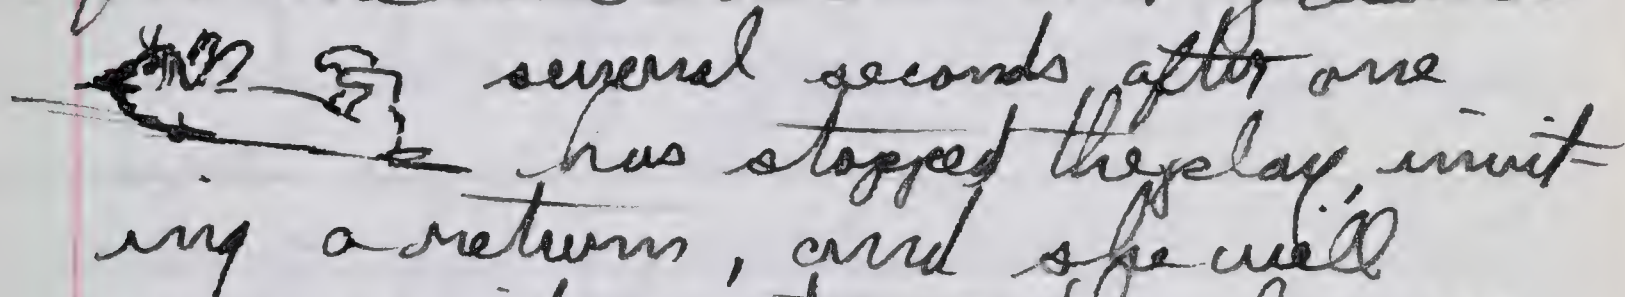 several seconds after one
has stopped the play, invit-
ing a return, and she will